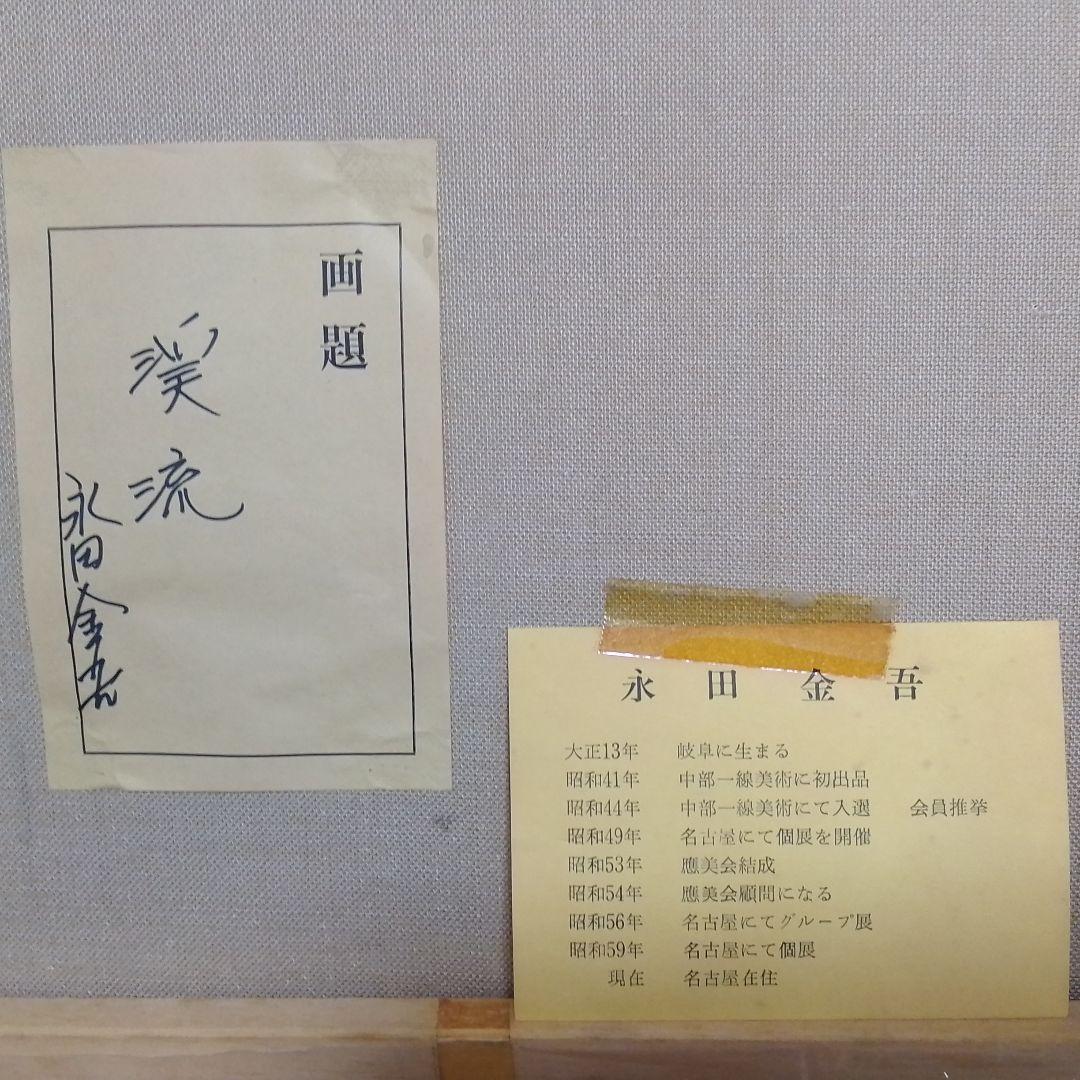 画題
渓流
永田金吾
永田金吾
大正13年 岐阜に生まる
昭和41年 中部一線美術に初出品
昭和44年 中部一線美術にて入選 会員推挙
昭和49年 名古屋にて個展を開催
昭和53年 應美会結成
昭和54年 應美会顧問になる
昭和56年 名古屋にてグループ展
昭和59年 名古屋にて個展
現在 名古屋在住